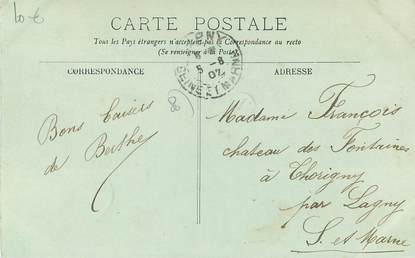 10 €
CARTE POSTALE
Tous les Pays étrangers n'acceptent pas la Correspondance au recto
(Se renseigner à la Poste)
CORRESPONDANCE
ADRESSE
5 -8
07
SEINE ET MARNE
Bons baisers
de Berthe
Madame François
chateau des Fontaines
à Thorigny
par Lagny
S. et Marne